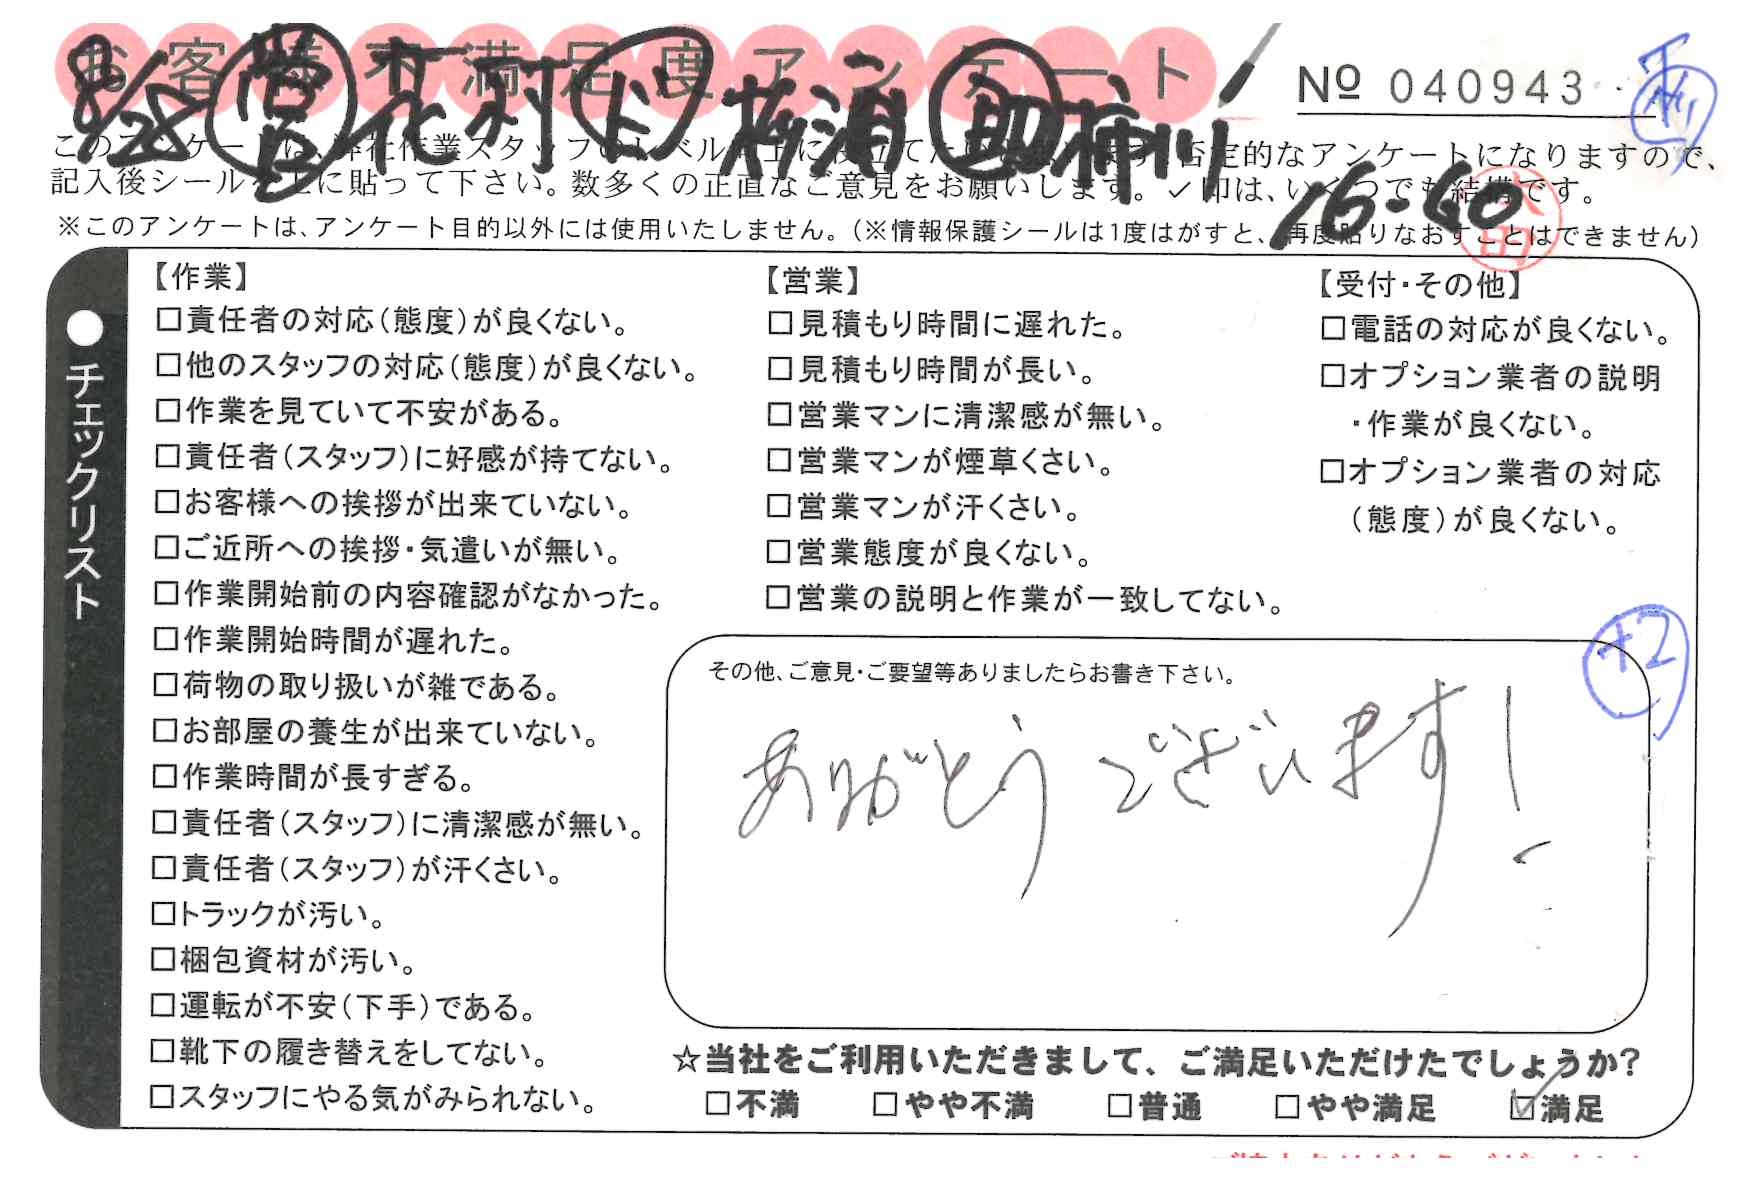 お客様不満足度アンケート
№ 040943
8/28 営 花村 ド 松浦 助 柿川
このアンケートは、弊社作業スタッフのレベル向上に役立てたいと思います。否定的なアンケートになりますので、
記入後シールを上に貼って下さい。数多くの正直なご意見をお願いします。✓印は、いくつでも結構です。
16-60
※このアンケートは、アンケート目的以外には使用いたしません。(※情報保護シールは1度はがすと、再度貼りなおすことはできません)
●チェックリスト
【作業】
□責任者の対応(態度)が良くない。
□他のスタッフの対応(態度)が良くない。
□作業を見ていて不安がある。
□責任者(スタッフ)に好感が持てない。
□お客様への挨拶が出来ていない。
□ご近所への挨拶・気遣いが無い。
□作業開始前の内容確認がなかった。
□作業開始時間が遅れた。
□荷物の取り扱いが雑である。
□お部屋の養生が出来ていない。
□作業時間が長すぎる。
□責任者(スタッフ)に清潔感が無い。
□責任者(スタッフ)が汗くさい。
□トラックが汚い。
□梱包資材が汚い。
□運転が不安(下手)である。
□靴下の履き替えをしてない。
□スタッフにやる気がみられない。
【営業】
□見積もり時間に遅れた。
□見積もり時間が長い。
□営業マンに清潔感が無い。
□営業マンが煙草くさい。
□営業マンが汗くさい。
□営業態度が良くない。
□営業の説明と作業が一致してない。
【受付・その他】
□電話の対応が良くない。
□オプション業者の説明
・作業が良くない。
□オプション業者の対応
(態度)が良くない。
+2
その他、ご意見・ご要望等ありましたらお書き下さい。
ありがとうございます!
☆当社をご利用いただきまして、ご満足いただけたでしょうか?
□不満 □やや不満 □普通 □やや満足 ☑満足